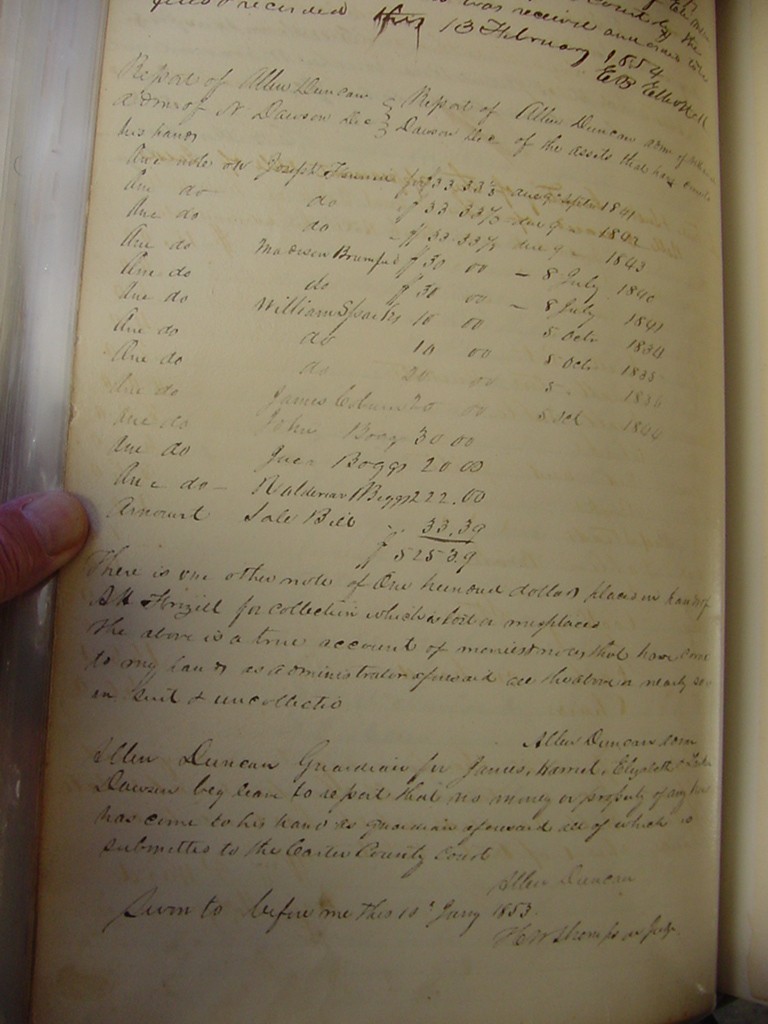 was received and
recorded this 13 February 1854
EB Elliott
Report of Allen Duncan } Report of Allen Duncan adm of
adm of N Dawson dec } Dawson dec of the assets that have
his hands
One note on Joseph for $33.33⅓ due 9 Sept 1841
One do do $33 33⅓ due 9 - 1842
One do do $33.33⅓ due 9 - 1843
One do Madison Brumfield $30 00 - 8 July 1840
One do do $30 00 - 8 July 1841
One do William Sparks 10 00 5 Octr 1834
One do do 10 00 5 Octr 1835
One do do 20 00 5 - 1836
One do James 00 5 Oct
One do John Bogg 30 00
One do Boggs 20.00
One do - Boggs 222.00
Amount Sale Bill - 33.39
$ 525 39
There is one other note of One hundred dollars places in hands of
for collection which is lost or misplaces
The above is a true account of monies & notes that have come
to my hands as administrator aforesaid all the above or nearly so
in suit & uncollectio
Allen Duncan adm
Allen Duncan Guardian for James, Harriet, Elizabeth &
Dawson beg leave to report that no money or property of any kind
has come to his hand as guardian aforesaid all of which is
submittes to the Carter County Court
Allen Duncan
Sworn to before me this 10th Jany 1853
H W Thompson Judge